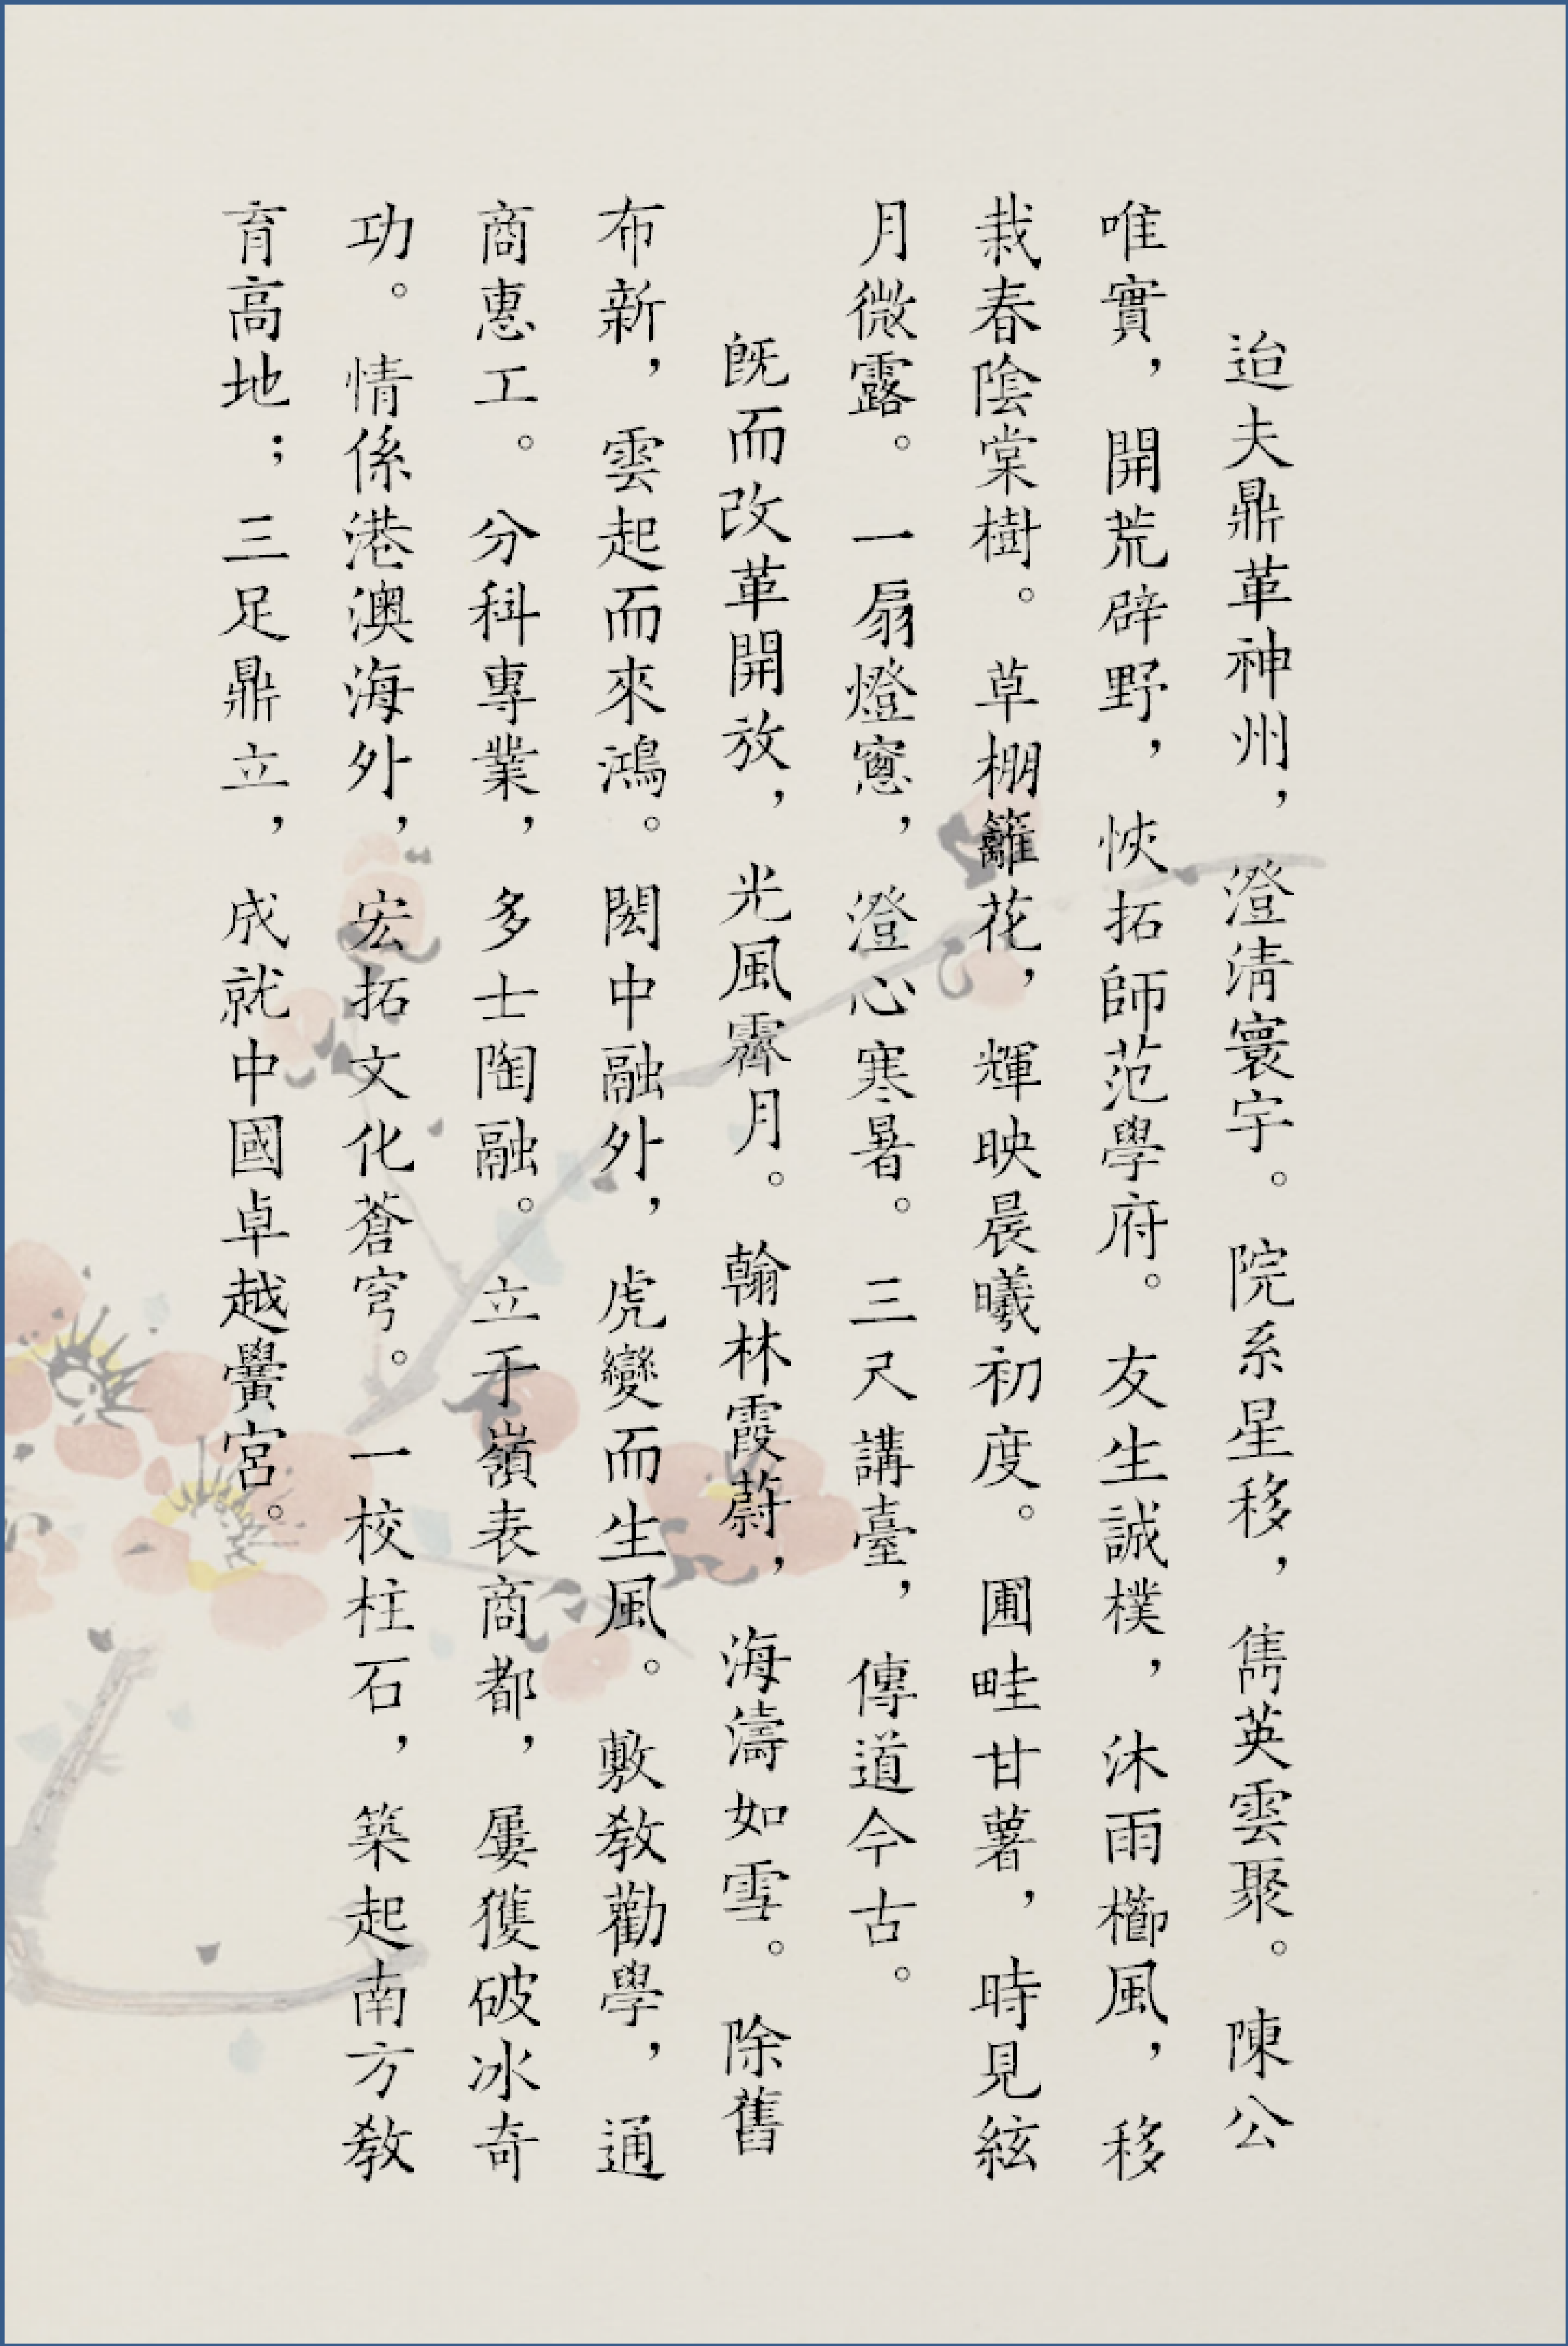 迨夫鼎革神州，澄清寰宇。院系星移，雋英雲聚。陳公
唯實，開荒辟野，恢拓師范學府。友生誠樸，沐雨櫛風，移
栽春陰棠樹。草棚籬花，輝映晨曦初度。圃畦甘薯，時見絃
月微露。一扇燈窻，澄心寒暑。三尺講臺，傳道今古。
既而改革開放，光風霽月。翰林霞蔚，海濤如雪。除舊
布新，雲起而來鴻。閎中融外，虎變而生風。敷教勸學，通
商惠工。分科專業，多士陶融。立于嶺表商都，屢獲破冰奇
功。情係港澳海外，宏拓文化蒼穹。一校柱石，築起南方教
育高地；三足鼎立，成就中國卓越黌宮。